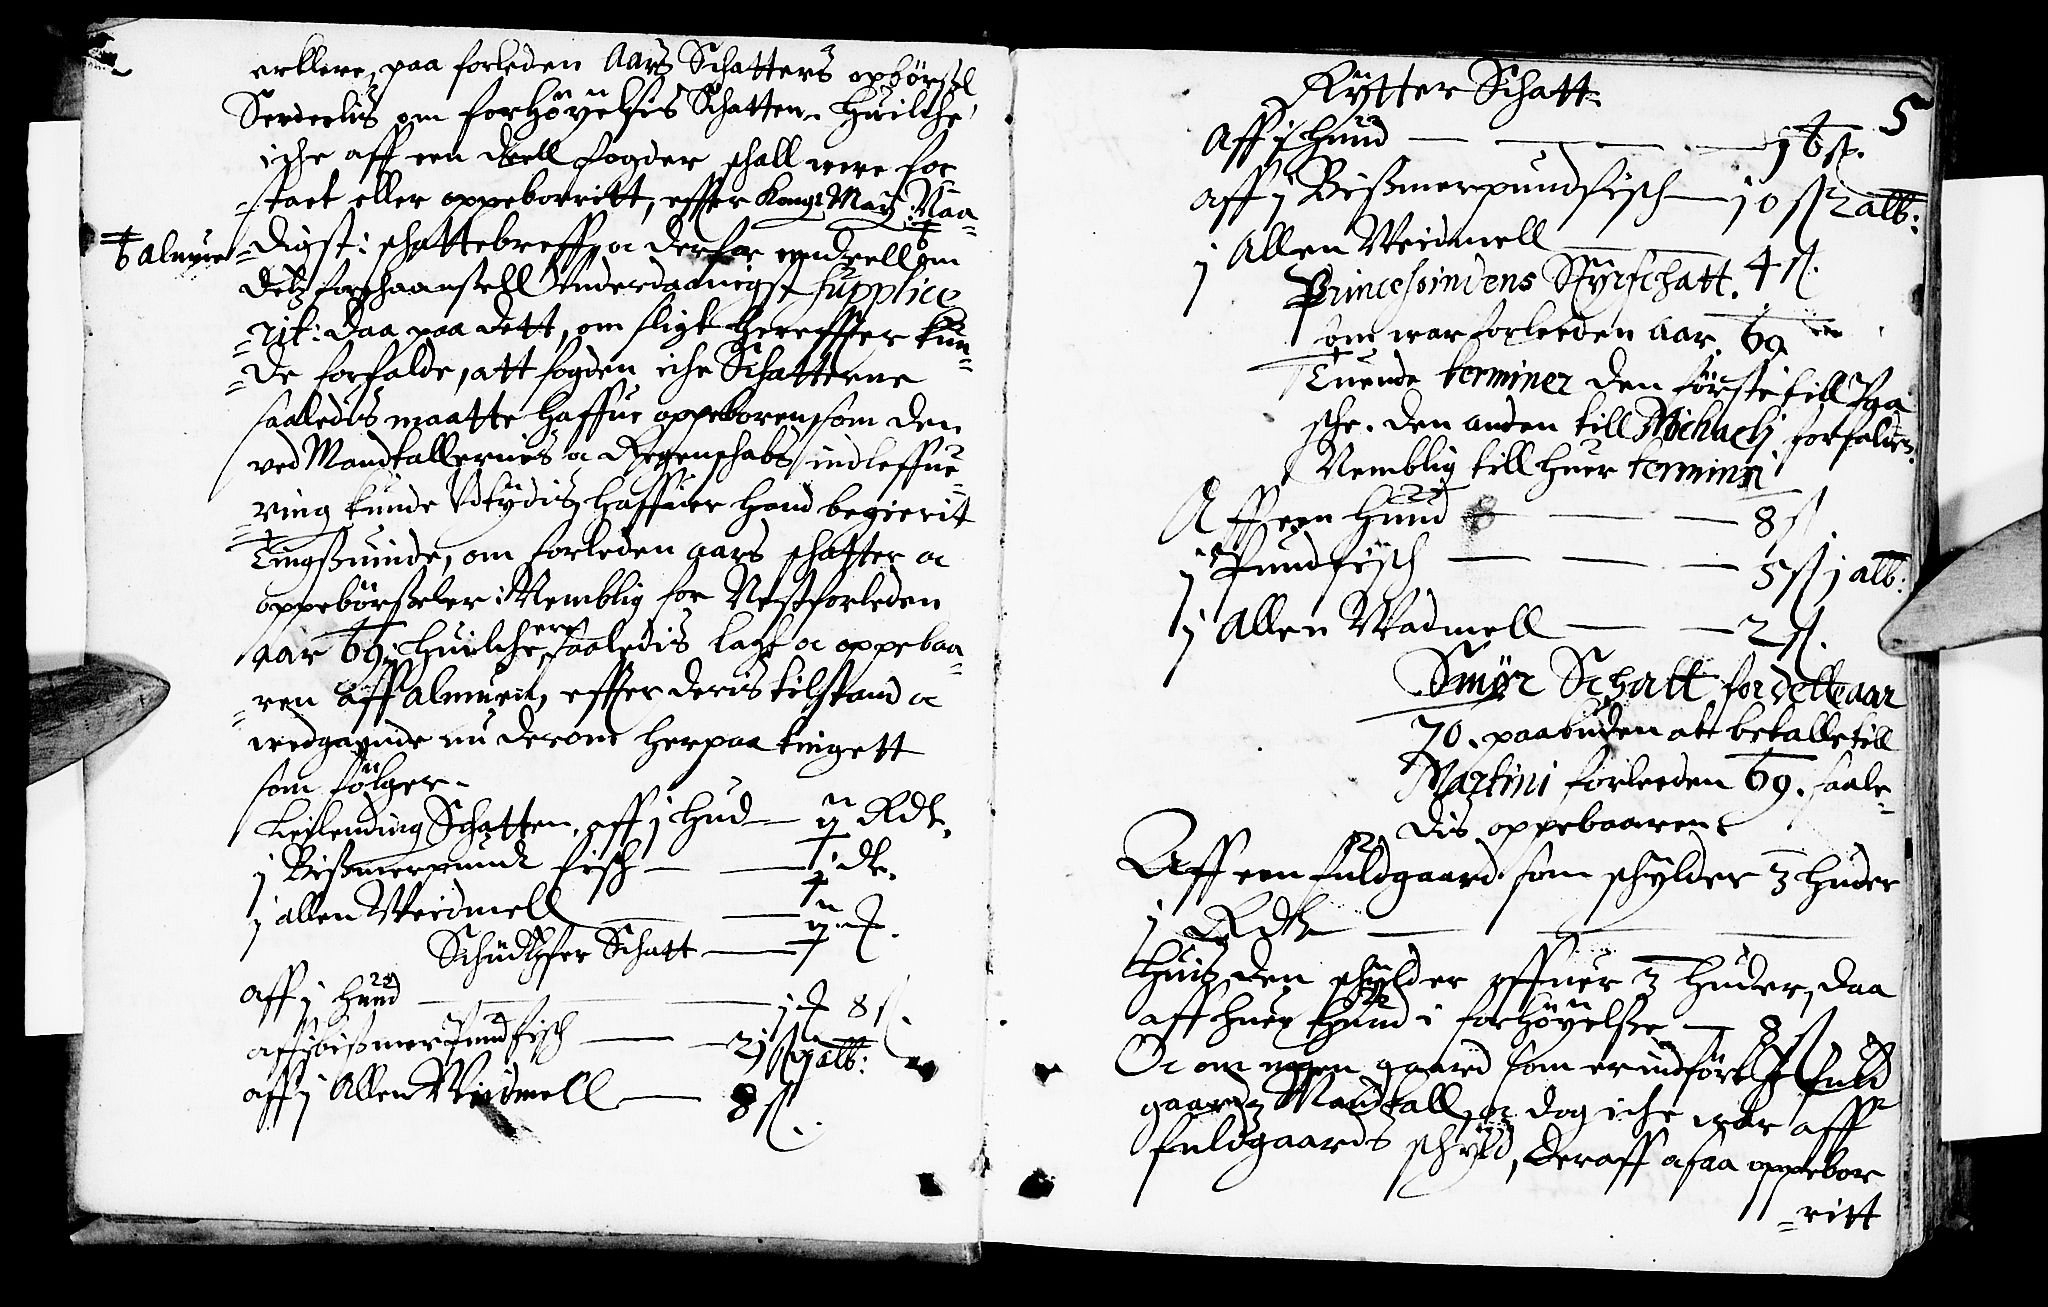 erklere, paa forleden Aars Schatters opbörsel
Serdeelis om forhöyelsis Schatten. Huilche
iche aff een deell fogder schall vere for
staet eller oppeborritt, effter Kongl May: Naa-
digst: schattebreff, oc derfor eendeell om
† almuen
dets forschaansell Underdaanigst supplice-
rit: daa paa dett, om sligt herefter kun-
de forfalde, att fogden iche Schatterne
saaledis maatte haffue oppeboren, som den
ved Mandtallernes oc Regenschabs indleffue-
ring kunde Udtydis, haffuer hand begierit
Tingsuinde, om forleden aars schatter oc
oppebörseler: Nemblig for Nestforleden
aar 69. huilche ere saaledis lagt oc oppebaa-
ren aff almuen, effter deris tilstand oc
vedgaaende nu derom her paa tingett
som fölger.
Leylending Schatten, aff j hud — ij Rdr.
j Bissmerpund fisch — j dr.
j allen Weidmell —
Schydtzfer Schatt —
aff j hud — j 8 s.
aff j bissmer Pund fisch — 21 s j alb:
aff j Allen Weidmell — 8 s.
5
Rytter Schatt
Aff j hud —
aff j Bissmerpund fisch — 10 s 2 alb:
j Allen Weidmell — 4 s.
Princessindens Styrschatt.
som war forleeden aar 69
Tuende terminer den förste till Paa
sche. den anden till Michaeli forfalden.
Nemblig till huer termin
Aff een hud — 8 s
j Pund fisch — 5 s j alb:
j Allen Wadmell — 2 s.
Smör Schatt for dette aar
70. paabuden at betalle till
Martini forleeden 69. saale-
dis oppebaaren
Aff een fuldgaard som schylder 3 huder
j Rdr —
Huis den schylder offuer 3 huder, daa
aff huer hud i forhöyelse — 8 s
Oc om nogen gaard som er indfört for fuld
gaard i Mandtall, oc dog iche war aff
fuldgaards schyld, deraff osaa oppebor
-ritt